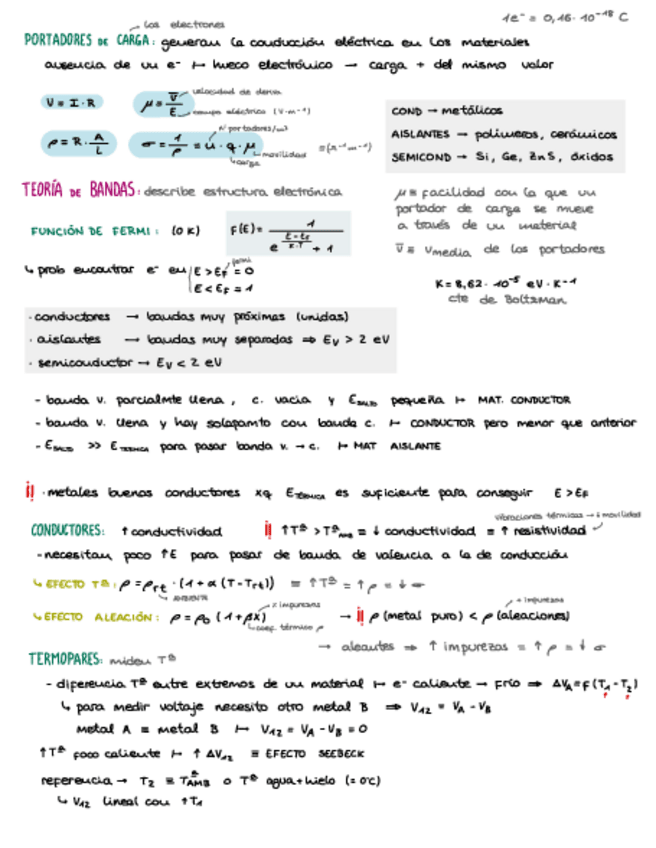 los electrones
1e⁻ = 0,16·10⁻¹⁸ C
PORTADORES DE CARGA: generan la conducción eléctrica en los materiales
ausencia de un e⁻ ↦ hueco electrónico → carga + del mismo valor
V = I·R
μ = v̅/E
velocidad de deriva
campo eléctrico (V·m⁻¹)
COND → metálicos
AISLANTES → polímeros, cerámicos
SEMICOND → Si, Ge, ZnS, óxidos
ρ = R·A/L
σ = 1/ρ = n·q·μ
nº portadores/m³
movilidad
carga
TEORÍA DE BANDAS: describe estructura electrónica
μ ≡ facilidad con la que un
portador de carga se mueve
a través de un material
v̅ ≡ Vmedia de los portadores
FUNCIÓN DE FERMI: (0 K)
F(E) = 1/(e^((E-EF)/(K·T)) + 1)
↳ prob encontrar e⁻ en
fermi
E > EF = 0
E < EF = 1
K = 8,62·10⁻⁵ eV·K⁻¹
cte de Boltzman
· conductores → bandas muy próximas (unidas)
· aislantes → bandas muy separadas ⇒ Ev > 2 eV
· semiconductor → Ev < 2 eV
- banda v. parcialmte llena, c. vacía y ESALTO pequeña ↦ MAT. CONDUCTOR
- banda v. llena y hay solapamto con banda c. ↦ CONDUCTOR pero menor que anterior
- ESALTO >> ETÉRMICA para pasar banda v. → c. ↦ MAT AISLANTE
¡! · metales buenos conductores xq ETÉRMICA es suficiente para conseguir E > EF
vibraciones térmicas → ↓ movilidad
CONDUCTORES: ↑ conductividad ¡! ↑Tª > TªAMB = ↓ conductividad = ↑ resistividad
- necesitan poco ↑E para pasar de banda de valencia a la de conducción
↳ EFECTO Tª: ρ = ρrt · (1 + α (T - Trt)) ≡ ↑Tª = ↑ρ = ↓σ
AMBIENTE
x impurezas
+ impurezas
↳ EFECTO ALEACIÓN: ρ = ρ₀ (1 + βx) → ¡! ρ (metal puro) < ρ (aleaciones)
coef. térmico ρ
→ aleantes ⇒ ↑ impurezas = ↑ρ = ↓σ
TERMOPARES: miden Tª
- diferencia Tª entre extremos de un material ↦ e⁻ caliente → Frío ⇒ ΔVA = F(T₁ - T₂)
↳ para medir voltaje necesito otro metal B ⇒ V₁₂ = VA - VB
Metal A ≡ metal B ↦ V₁₂ = VA - VB = 0
↑Tª foco caliente ↦ ↑ΔV₁₂ ≡ EFECTO SEEBECK
referencia → T₂ ≡ TªAMB o Tª agua+hielo (= 0ºC)
↳ V₁₂ lineal con ↑T₁